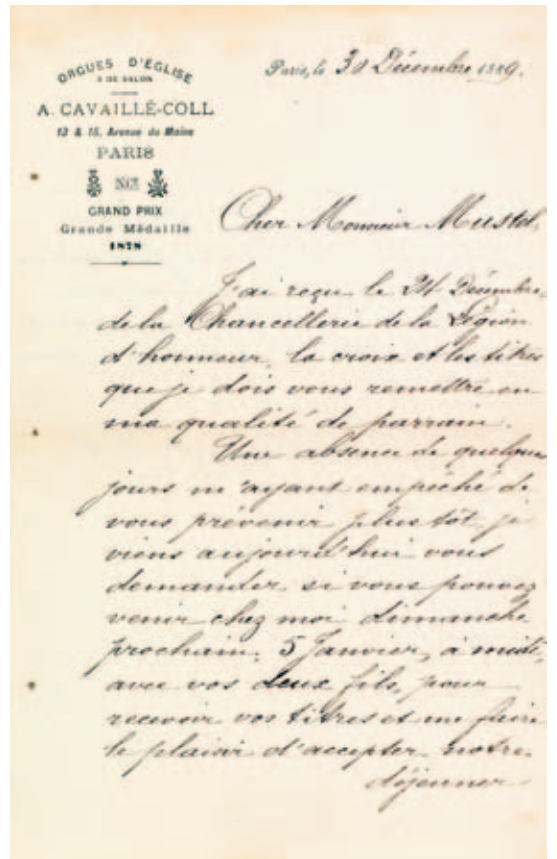 ORGUES D'ÉGLISE
& DE SALON
A. CAVAILLÉ-COLL
13 & 15, Avenue du Maine
PARIS
GRAND PRIX
Grande Médaille
1878
Paris, le 30 Décembre 1889.
Cher Monsieur Mustel,
J'ai reçu le 24 Décembre,
de la Chancellerie de la Légion
d'honneur, la croix et les titres
que je dois vous remettre en
ma qualité de parrain.
Une absence de quelques
jours m'ayant empêché de
vous prévenir plus tôt, je
viens aujourd'hui vous
demander si vous pouvez
venir chez moi dimanche
prochain, 5 Janvier, à midi,
avec vos deux fils, pour
recevoir vos titres et me faire
le plaisir d'accepter notre
déjeuner